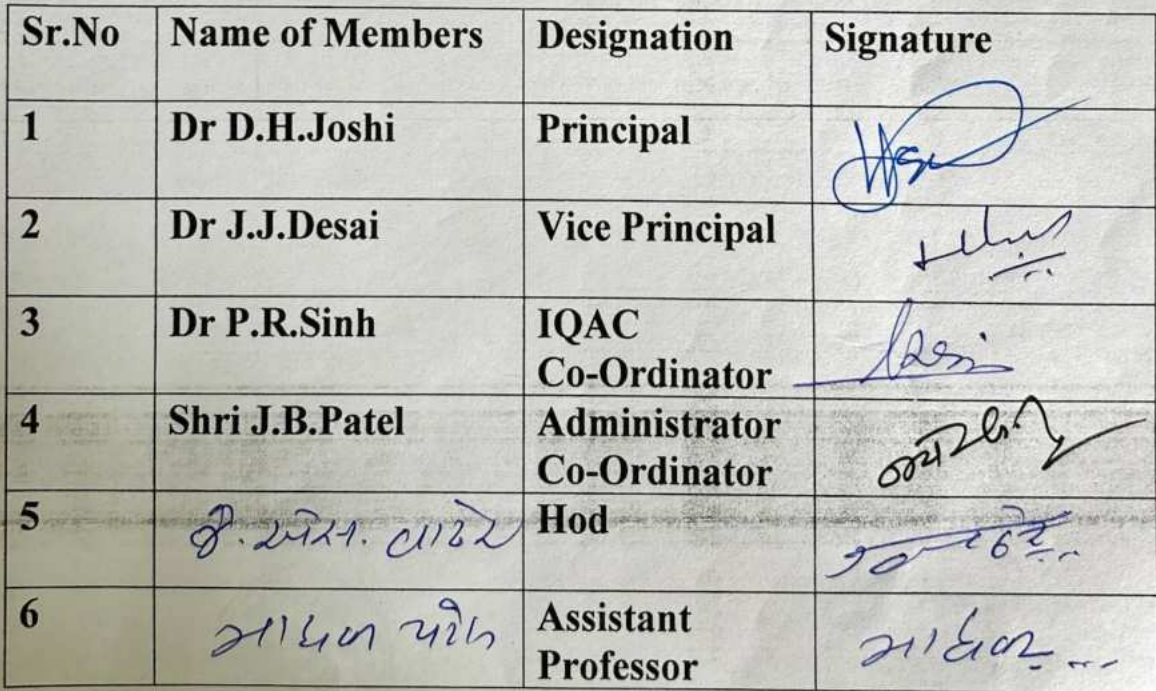 Sr.No Name of Members Designation Signature
1 Dr D.H.Joshi Principal
2 Dr J.J.Desai Vice Principal
3 Dr P.R.Sinh IQAC
Co-Ordinator
4 Shri J.B.Patel Administrator
Co-Ordinator
5 જે. એસ. વાઢેર Hod
6 Assistant
Professor